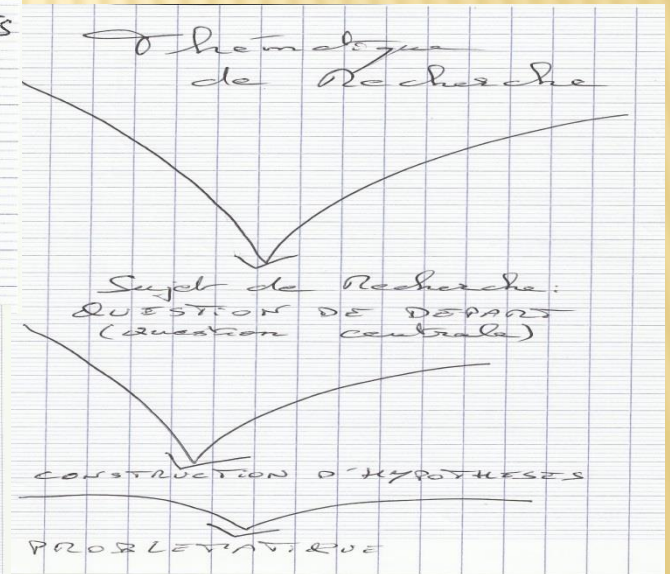 s
Thématique
de Recherche
Sujet de Recherche:
QUESTION DE DEPART
(question centrale)
CONSTRUCTION D'HYPOTHESES
PROBLEMATIQUE